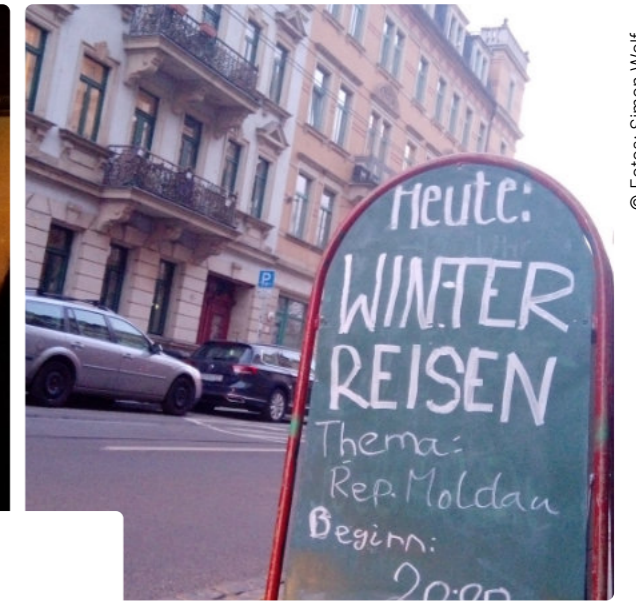 Heute:
WINTER
REISEN
Thema:
Rep. Moldau
Beginn:
P
© Fotos: Simon Wolf